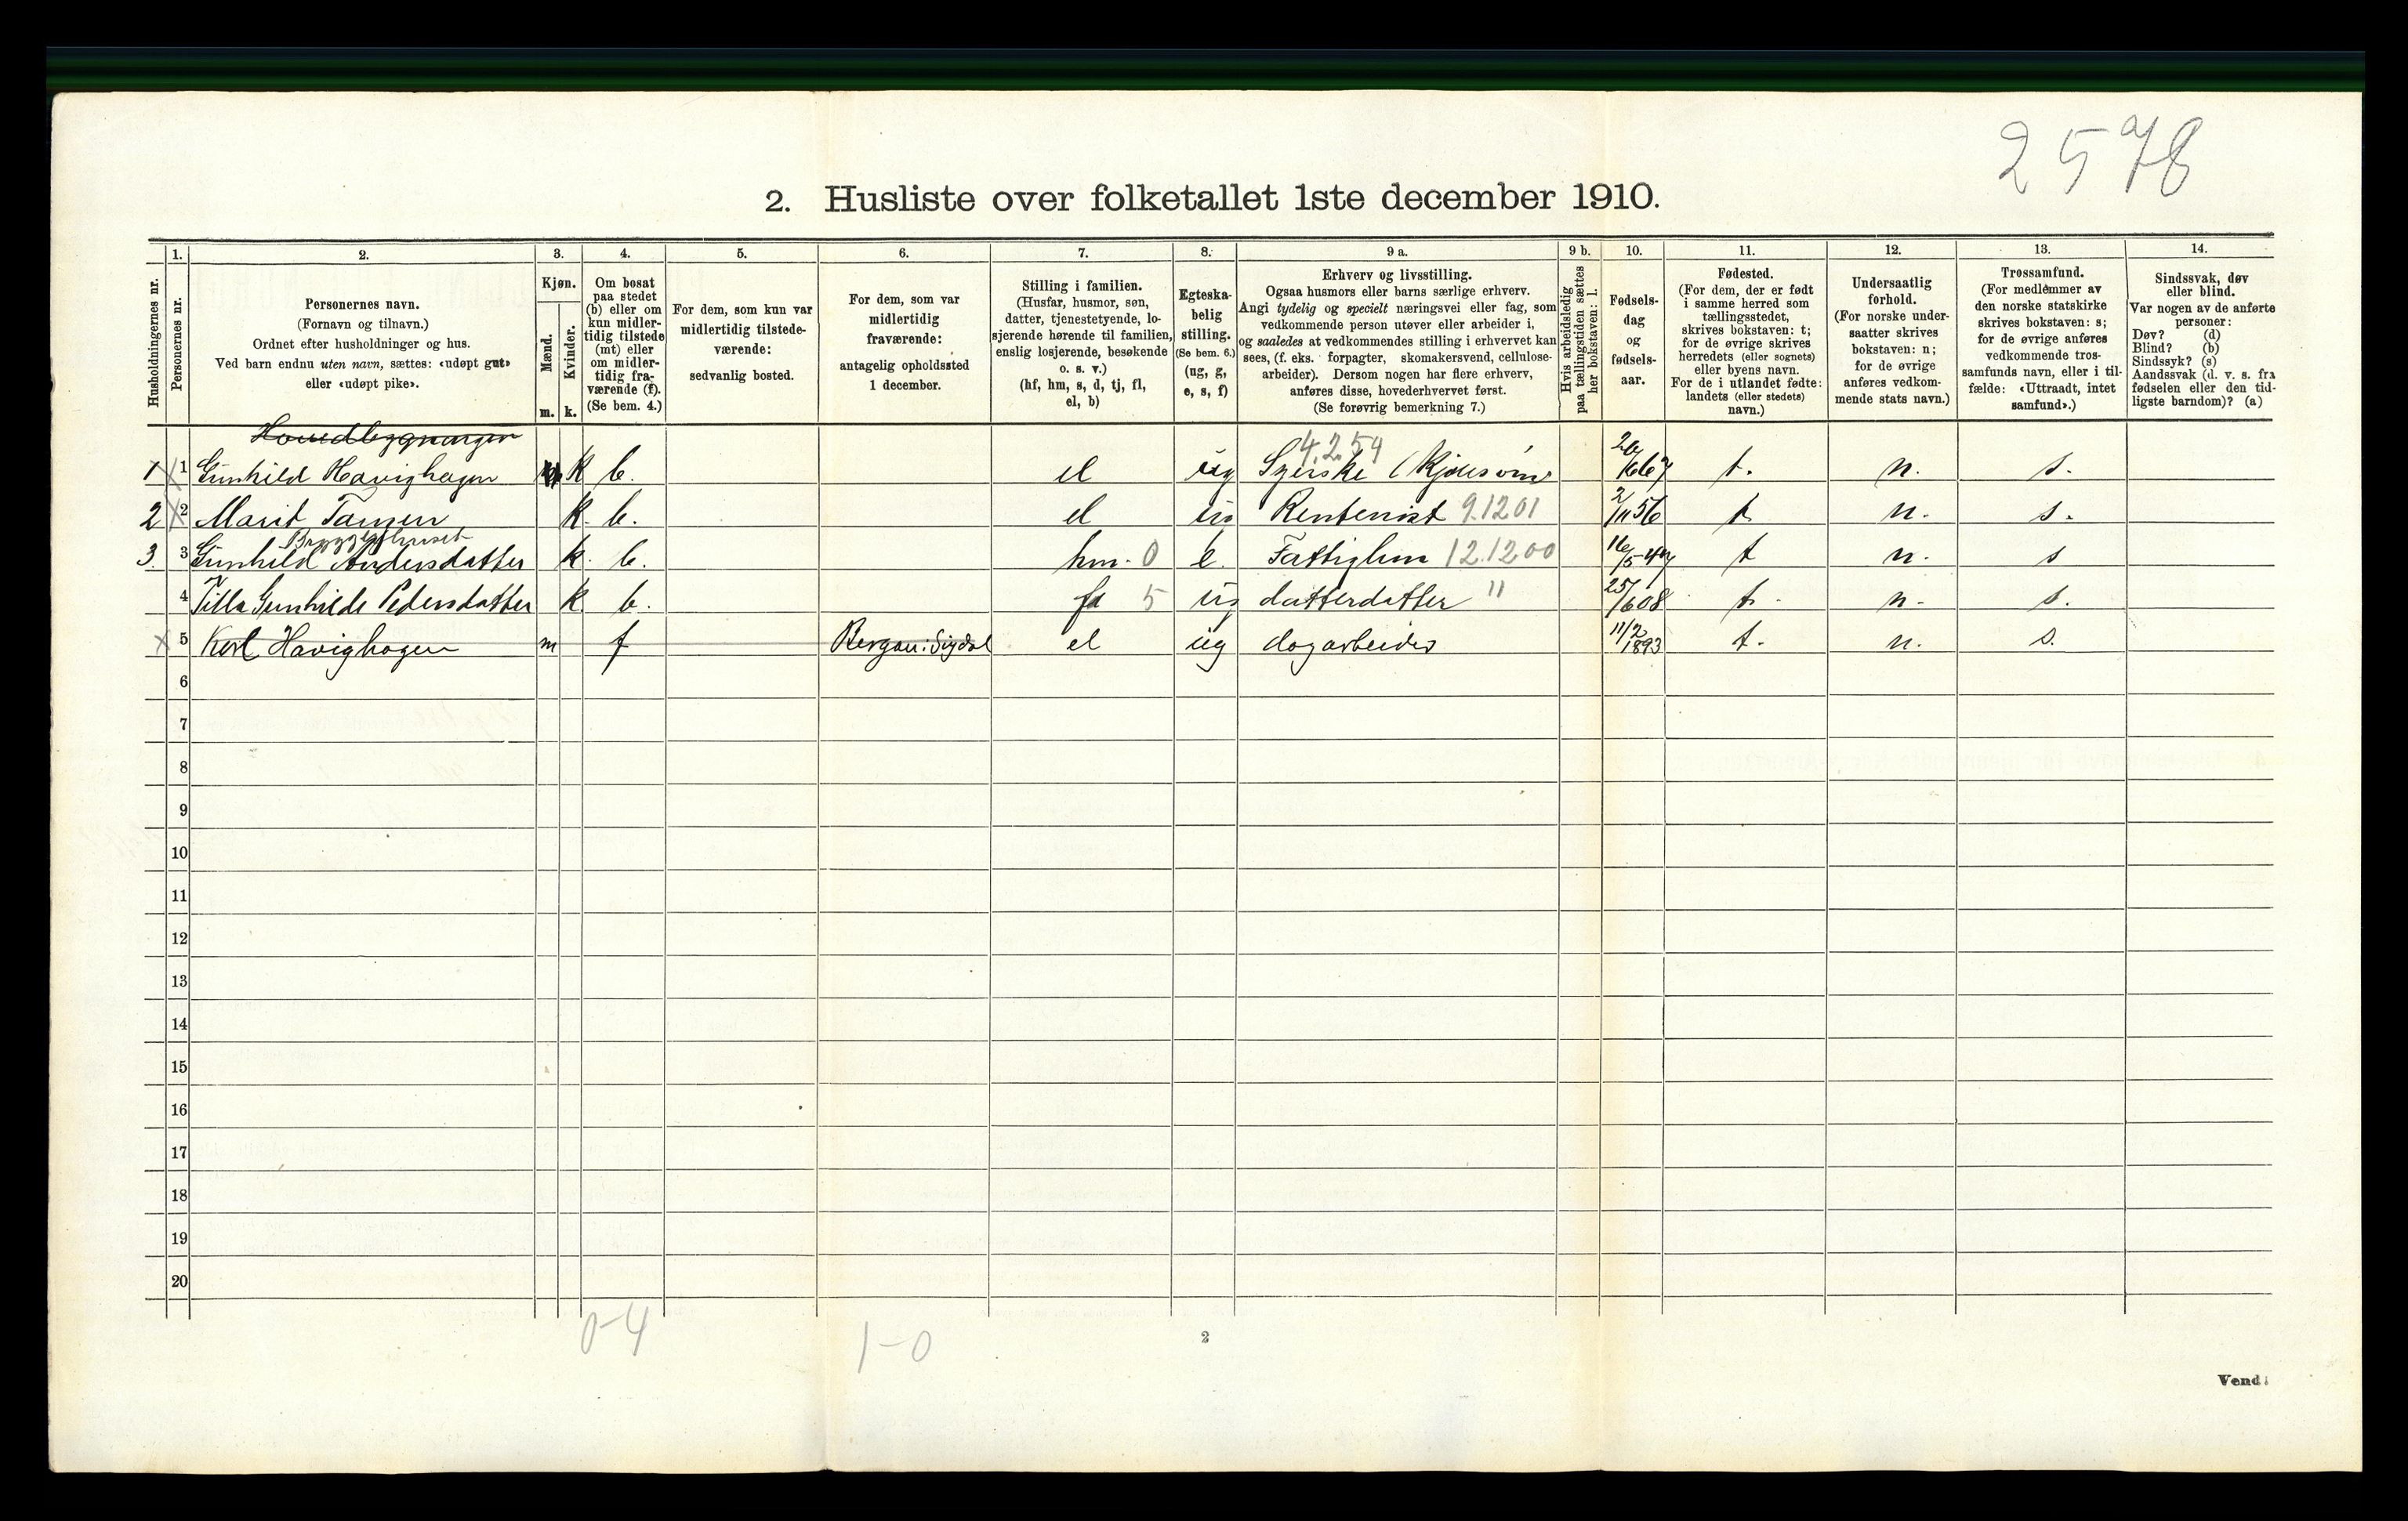 2578
2. Husliste over folketallet 1ste december 1910.
Husholdningernes nr.
1.
Personernes nr.
2.
Personernes navn.
(Fornavn og tilnavn.)
Ordnet efter husholdninger og hus.
Ved barn endnu uten navn, sættes: «udøpt gut»
eller «udøpt pike».
3.
Kjøn.
Mænd.
m.
Kvinder.
k.
4.
Om bosat
paa stedet
(b) eller om
kun midler-
tidig tilstede
(mt) eller
om midler-
tidig fra-
værende (f).
(Se bem. 4.)
5.
For dem, som kun var
midlertidig tilstede-
værende:
sedvanlig bosted.
6.
For dem, som var
midlertidig
fraværende:
antagelig opholdssted
1 december.
7.
Stilling i familien.
(Husfar, husmor, søn,
datter, tjenestetyende, lo-
sjerende hørende til familien,
enslig losjerende, besøkende
o. s. v.)
(hf, hm, s, d, tj, fl,
el, b)
8.
Egteska-
belig
stilling.
(Se bem. 6.)
(ug, g,
e, s, f)
9 a.
Erhverv og livsstilling.
Ogsaa husmors eller barns særlige erhverv.
Angi tydelig og specielt næringsvei eller fag, som
vedkommende person utøver eller arbeider i,
og saaledes at vedkommendes stilling i erhvervet kan
sees, (f. eks. forpagter, skomakersvend, cellulose-
arbeider). Dersom nogen har flere erhverv,
anføres disse, hovederhvervet først.
(Se forøvrig bemerkning 7.)
9 b.
Hvis arbeidsledig
paa tællingstiden sættes
her bokstaven: l.
10.
Fødsels-
dag
og
fødsels-
aar.
11.
Fødested.
(For dem, der er født
i samme herred som
tællingsstedet,
skrives bokstaven: t;
for de øvrige skrives
herredets (eller sognets)
eller byens navn.
For de i utlandet fødte:
landets (eller stedets)
navn.)
12.
Undersaatlig
forhold.
(For norske under-
saatter skrives
bokstaven: n;
for de øvrige
anføres vedkom-
mende stats navn.)
13.
Trossamfund.
(For medlemmer av
den norske statskirke
skrives bokstaven: s;
for de øvrige anføres
vedkommende tros-
samfunds navn, eller i til-
fælde: «Uttraadt, intet
samfund».)
14.
Sindssvak, døv
eller blind.
Var nogen av de anførte
personer:
Døv? (d)
Blind? (b)
Sindssyk? (s)
Aandssvak (d. v. s. fra
fødselen eller den tid-
ligste barndom)? (a)
Hovedbygningen
4.2.54
1 1 Gunhild Havighagen k b. el ug Syerske t. n. s.
2 2 Marit k. b. el ug Rentenist 9.1201 2/11 56 t n. s.
Bryggerhuset
3. 3 Gunhild Andersdatter k. b. hm. 0 e. 12.1200 16/5-47 t n. s
4 Gunhilde Pedersdatter k b. 5 ug datterdatter " 25/6 08 t. n. s.
5 Havighagen m f Sigdal el ug dagarbeider 11/2 1893 t. n. s.
6
7
8
9
10
11
12
13
14
15
16
17
18
19
20
0-4
1-0
2
Vend!